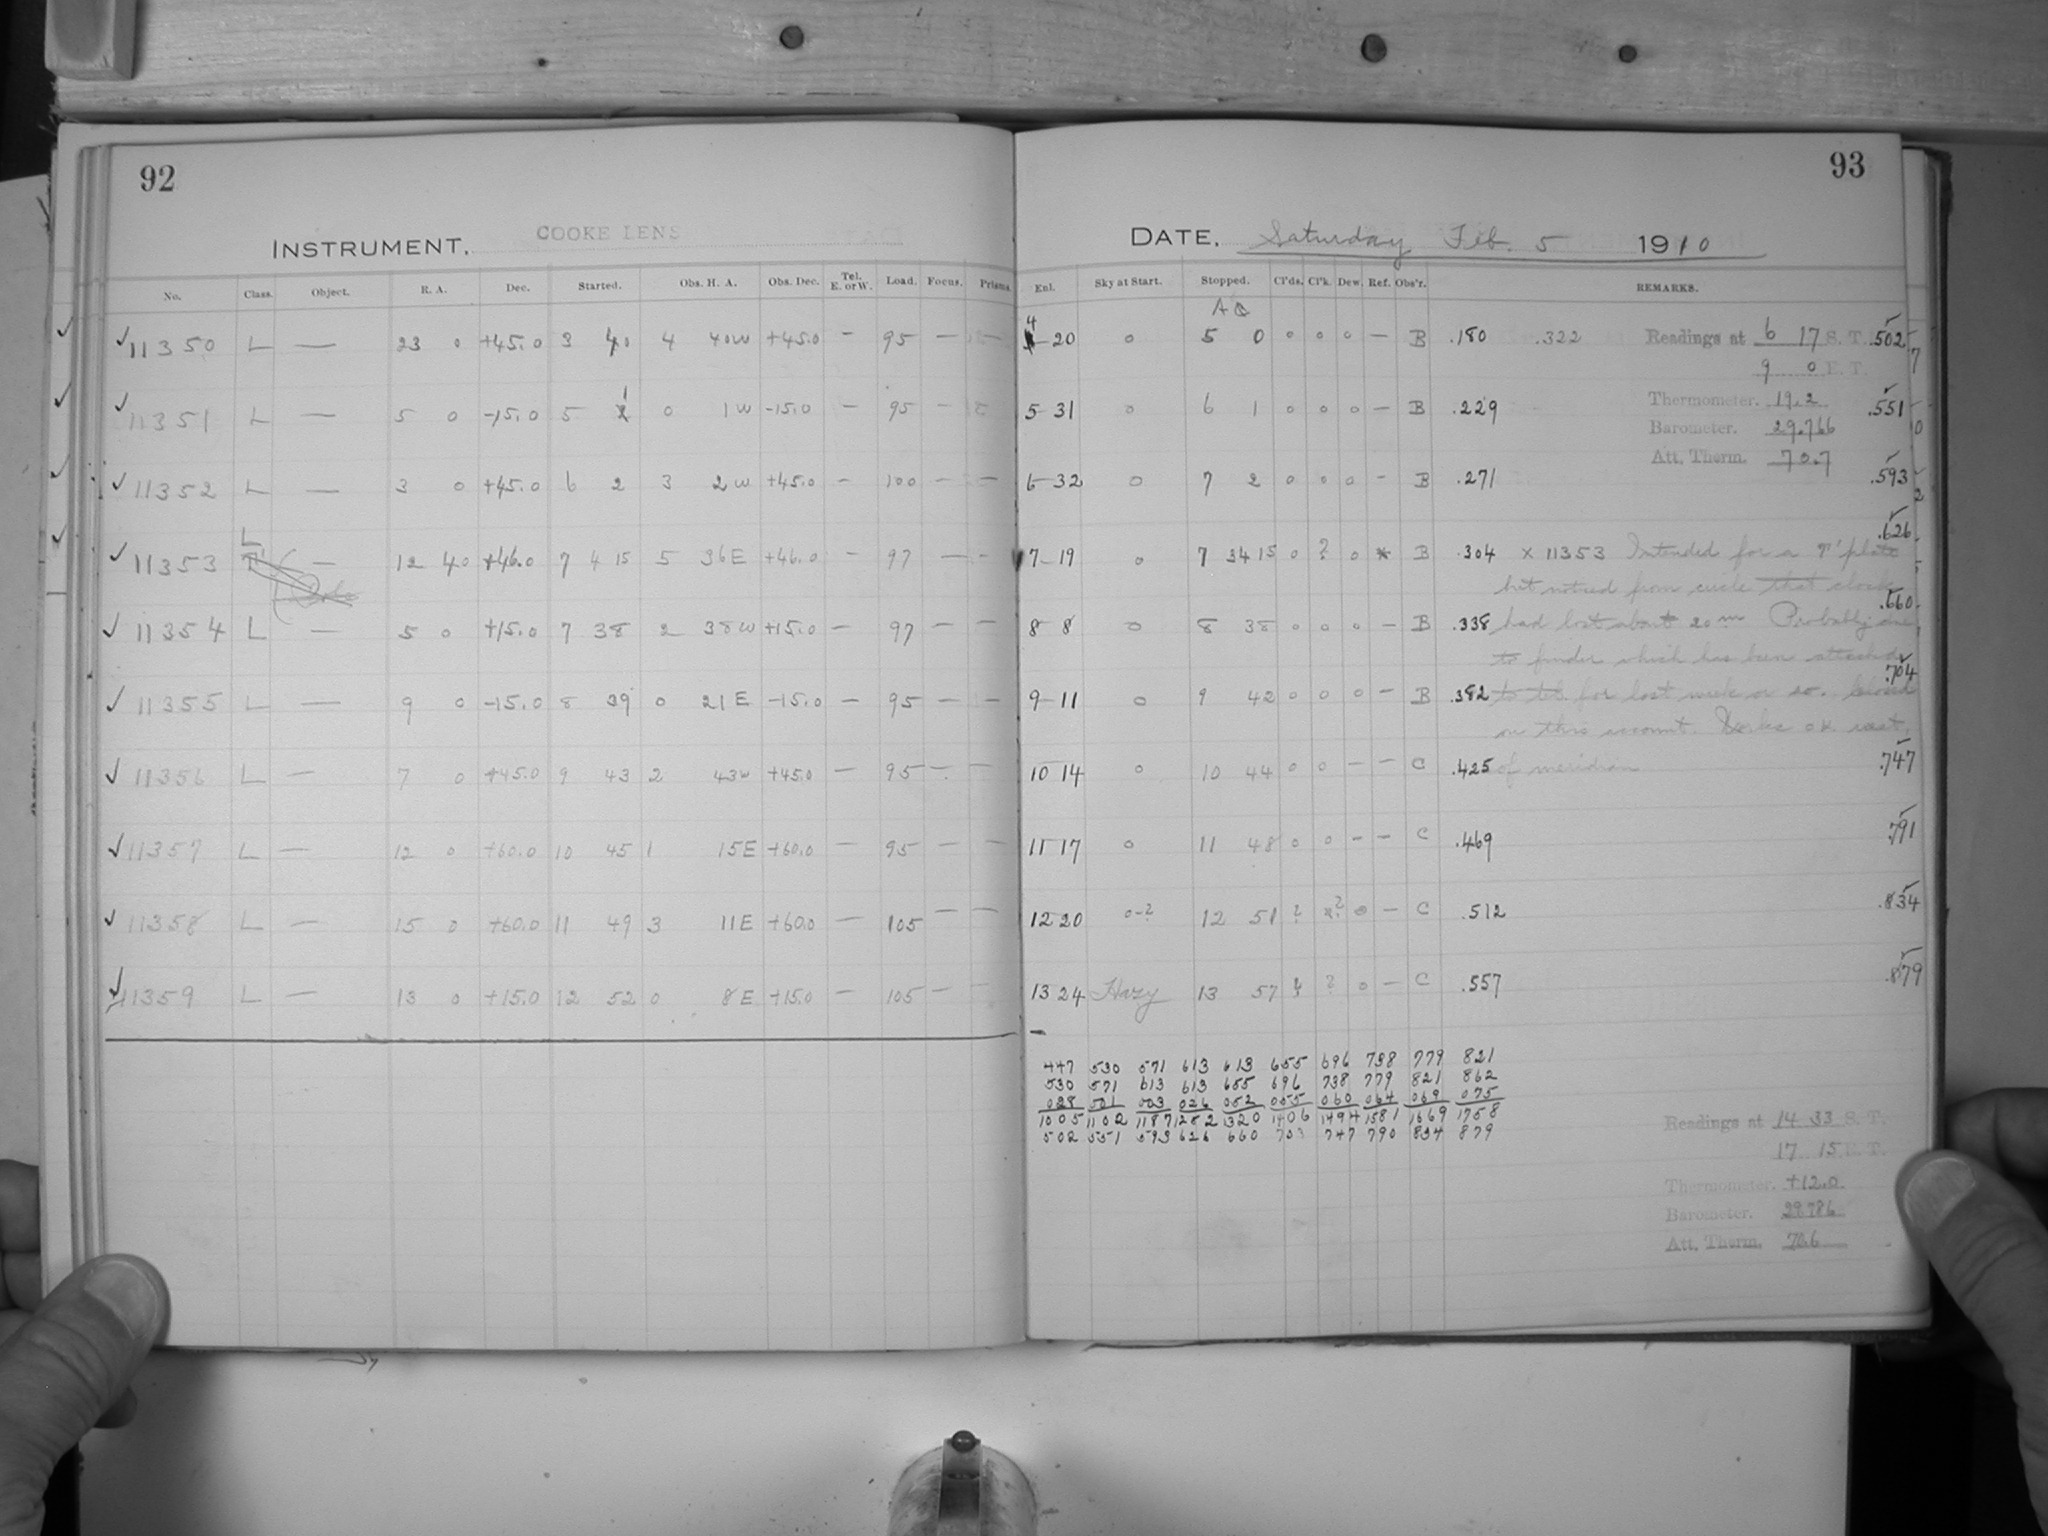 92
INSTRUMENT. COOKE LENS
No. Class. Object. R. A. Dec. Started. Obs. H. A. Obs. Dec. Tel. E. or W. Load. Focus. Prisms.
✓ 11350 L — 23 0 +45.0 3 40 4 40W +45.0 — 95 — —
✓ 11351 L — 5 0 -15.0 5 1 0 1W -15.0 — 95 —
✓ 11352 L — 3 0 +45.0 6 2 3 2W +45.0 — 100 — —
✓ 11353 L — 12 40 +46.0 7 4 15 5 36E +46.0 — 97 — —
✓ 11354 L — 5 0 +15.0 7 38 2 38W +15.0 — 97 — —
✓ 11355 L — 9 0 -15.0 8 39 0 21E -15.0 — 95 — —
✓ 11356 L — 7 0 +45.0 9 43 2 43W +45.0 — 95 — —
✓ 11357 L — 12 0 +60.0 10 45 1 15E +60.0 — 95 — —
✓ 11358 L — 15 0 +60.0 11 49 3 11E +60.0 — 105 — —
✓ 11359 L — 13 0 +15.0 12 52 0 8E +15.0 — 105 — —
93
DATE. Saturday Feb. 5 1910
Enl. Sky at Start. Stopped. Cl'ds. Cl'k. Dew. Ref. Obs'r. REMARKS.
4 20 0 5 0 0 0 0 — B .180 .322 Readings at 6 17 S. T. .502
9 0 E. T.
5 31 0 6 1 0 0 0 — B .229 Thermometer. 19.2 .551
Barometer. 29.766
Att. Therm. 70.7
6 32 0 7 2 0 0 0 - B .271 .593
7 19 0 7 34 15 0 ? 0 * B .304 × 11353 Intended for a plate .626
but noticed from circle that clock
8 8 0 8 38 0 0 0 — B .338 had lost about 20 m Probably due .660
to finder which has been attached
9 11 0 9 42 0 0 0 — B .382 to tel. for last week or so. Closed .704
on this account. Works OK west
10 14 0 10 44 0 0 — — C .425 of meridian .747
11 17 0 11 48 0 0 — — C .469 .791
12 20 0-? 12 51 ? ? 0 — C .512 .834
13 24 Hazy 13 57 ? ? 0 — C .557 .879
447 530 571 613 613 655 696 738 779 821
530 571 613 613 655 696 738 779 821 862
028 001 003 026 052 055 060 064 069 075
1005 1102 1187 1252 1320 1406 1494 1581 1669 1758
502 551 593 626 660 703 747 790 834 879
Readings at 14 33 S. T.
17 15 E. T.
Thermometer. +12.0
Barometer. 29.786
Att. Therm. 70.6